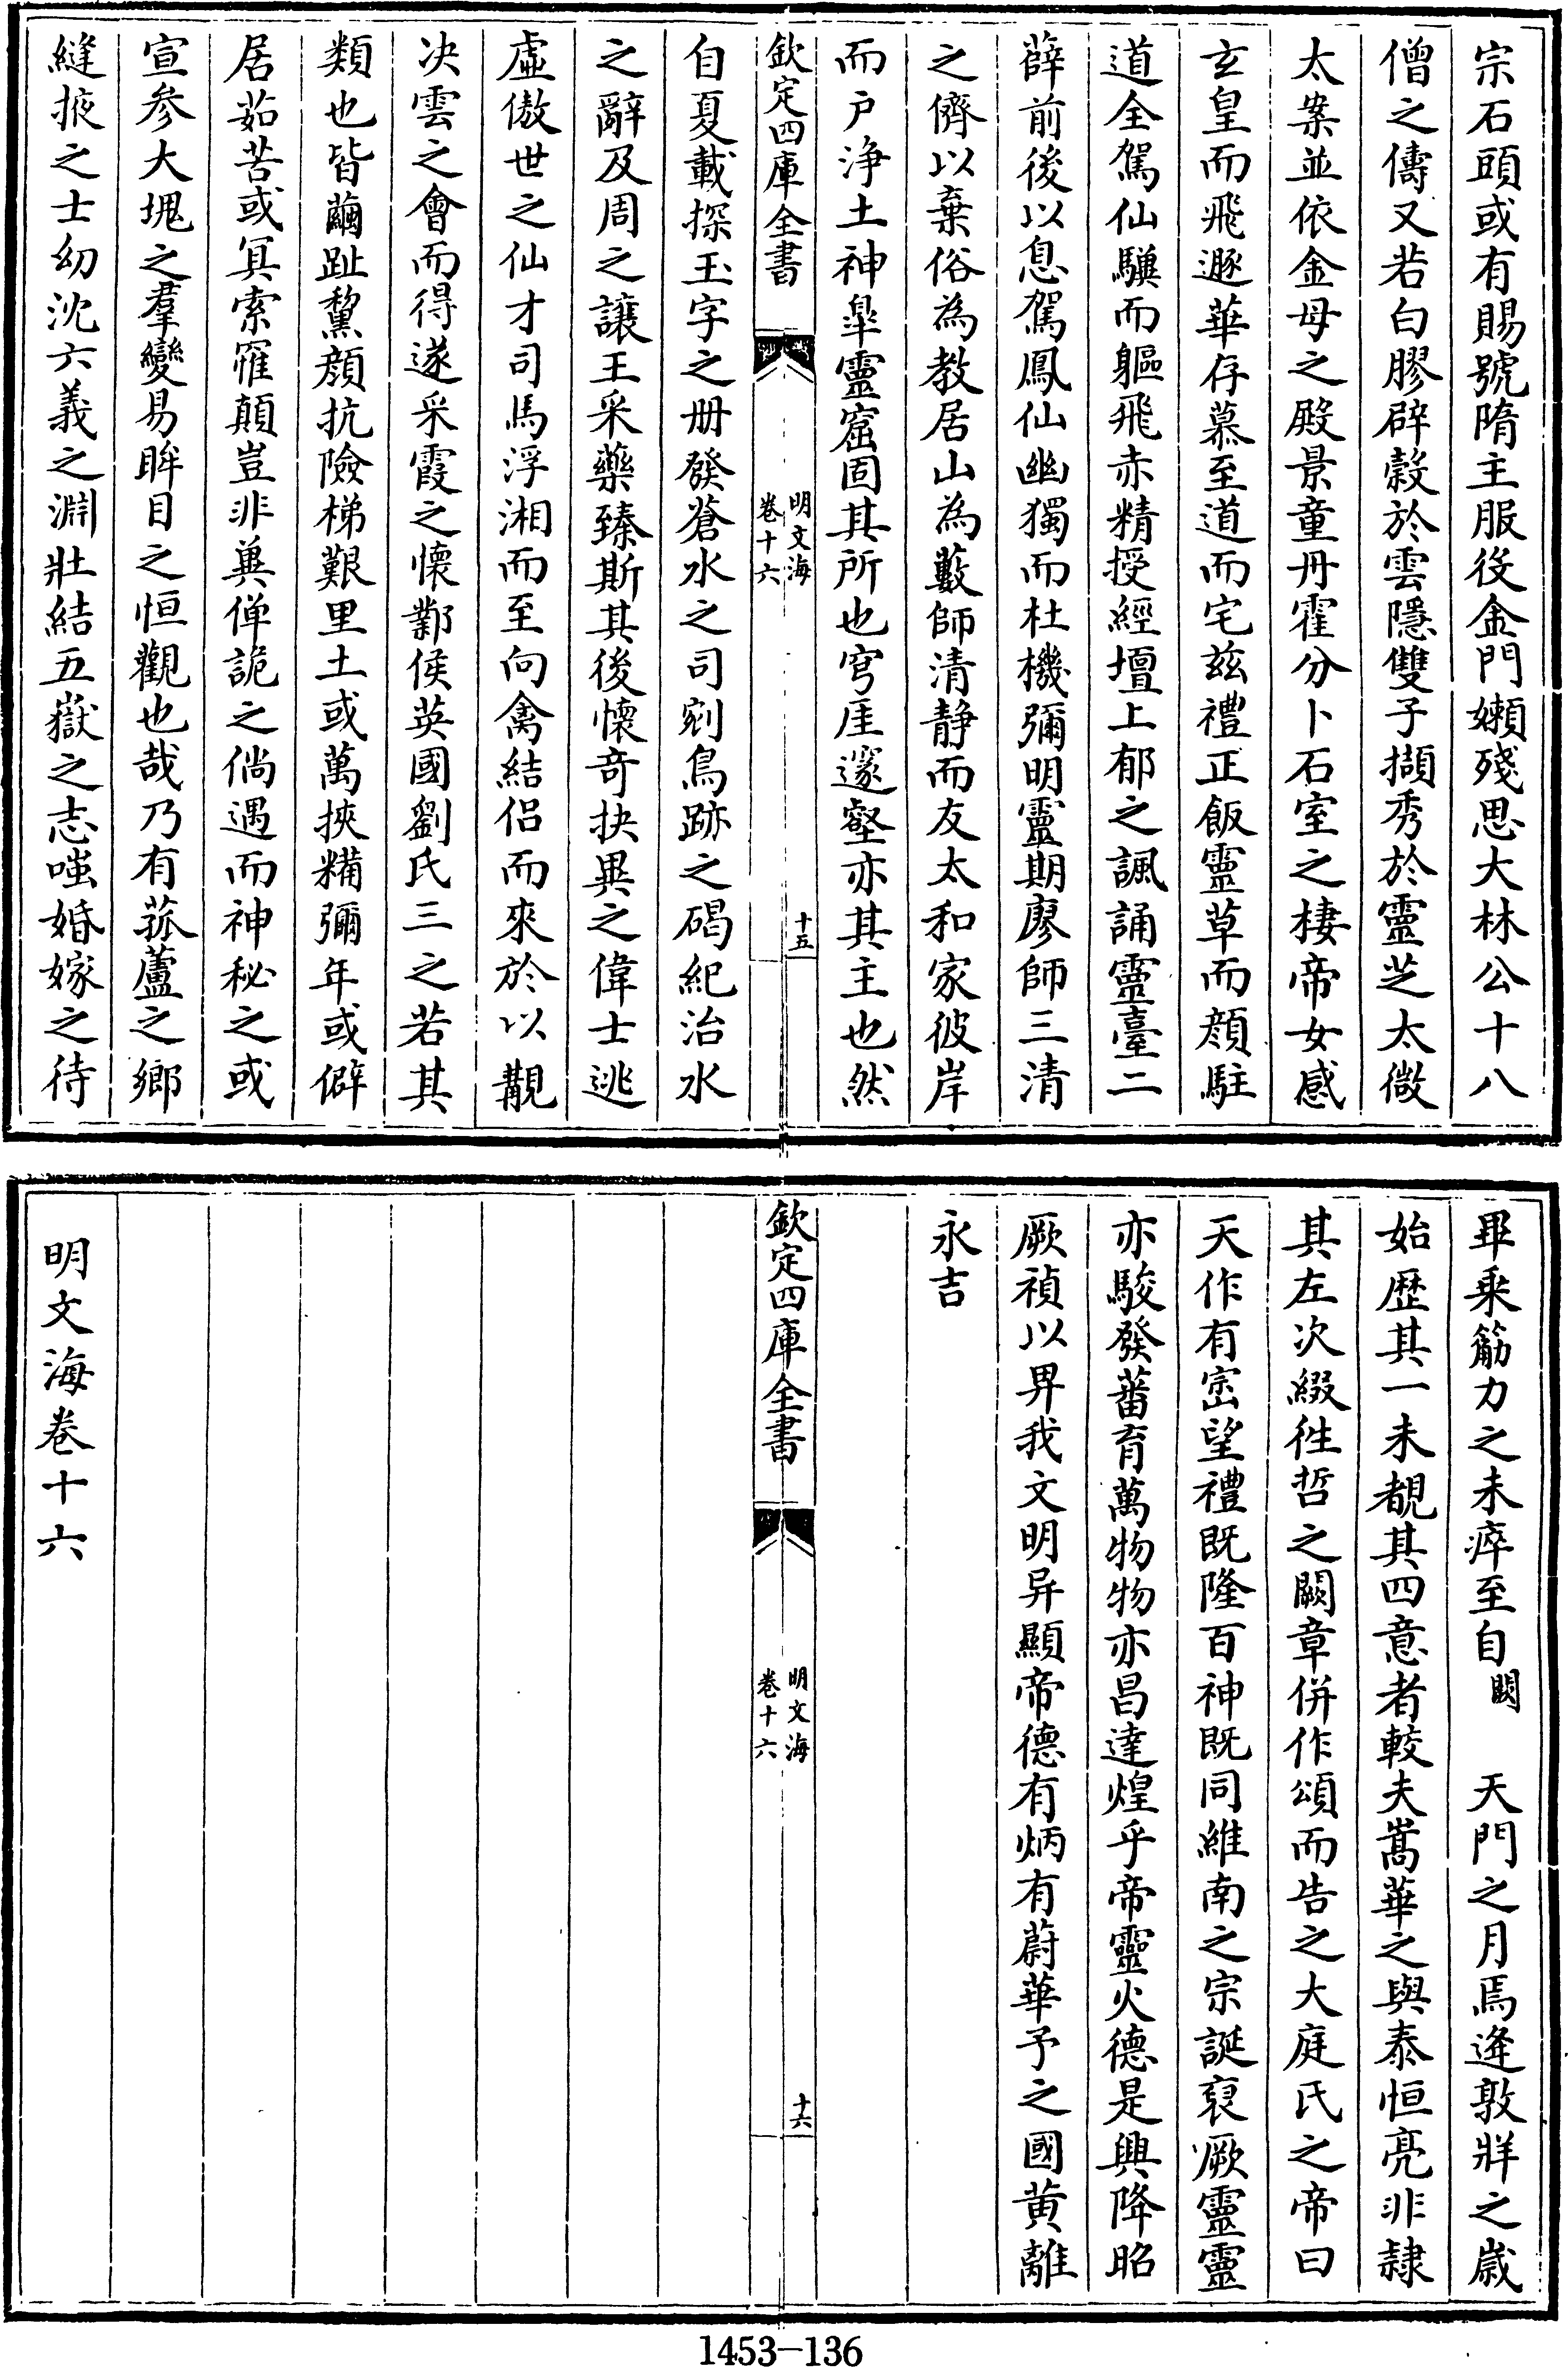 宗石頭或有賜號隋主服役金門嬾殘思大林公十八
僧之儔又若白膠辟穀於雲隱雙子擷秀於靈芝太微
太案並依金母之殿景童丹霍分卜石室之棲帝女感
玄皇而飛遯華存慕至道而宅兹禮正飯靈草而顔駐
道全駕仙驥而軀飛赤精授經壇上郁之諷誦靈臺二
薛前後以息駕鳳仙幽獨而杜機彌明靈期廖師三清
之儕以棄俗為教居山為藪師清静而友太和家彼岸
而户淨土神臯靈窟固其所也穹厓邃壑亦其主也然
欽定四庫全書
明文海
卷十六
十五
自夏載探玉字之册發蒼水之司剜鳥跡之碣紀治水
之辭及周之讓王采藥臻斯其後懷奇抉異之偉士逃
虛傲世之仙才司馬浮湘而至向禽結侣而來於以覯
决雲之會而得遂采霞之懷鄴侯英國劉氏三之若其
類也皆繭趾黧顔抗險梯艱里土或萬挾糒彌年或僻
居茹苦或冥索罹顛豈非冀僤詭之倘遇而神秘之或
宣参大塊之羣變易眸目之恒觀也哉乃有菰蘆之鄉
縫掖之士幼沈六義之淵壯結五嶽之志嗤婚嫁之待
畢乘筋力之未瘁至自闕 天門之月焉逢敦牂之歲
始歴其一未覩其四意者較夫嵩華之與泰恒亮非隷
其左次綴徃哲之闕章併作頌而告之大庭氏之帝曰
天作有宻望禮既隆百神既同維南之宗誕裒厥靈靈
亦駿發蕃育萬物物亦昌達煌乎帝靈火德是興降昭
厥禎以畀我文明异顯帝德有炳有蔚華予之國黄離
永吉
欽定四庫全書
明文海
卷十六
十六
明文海卷十六
1453-136